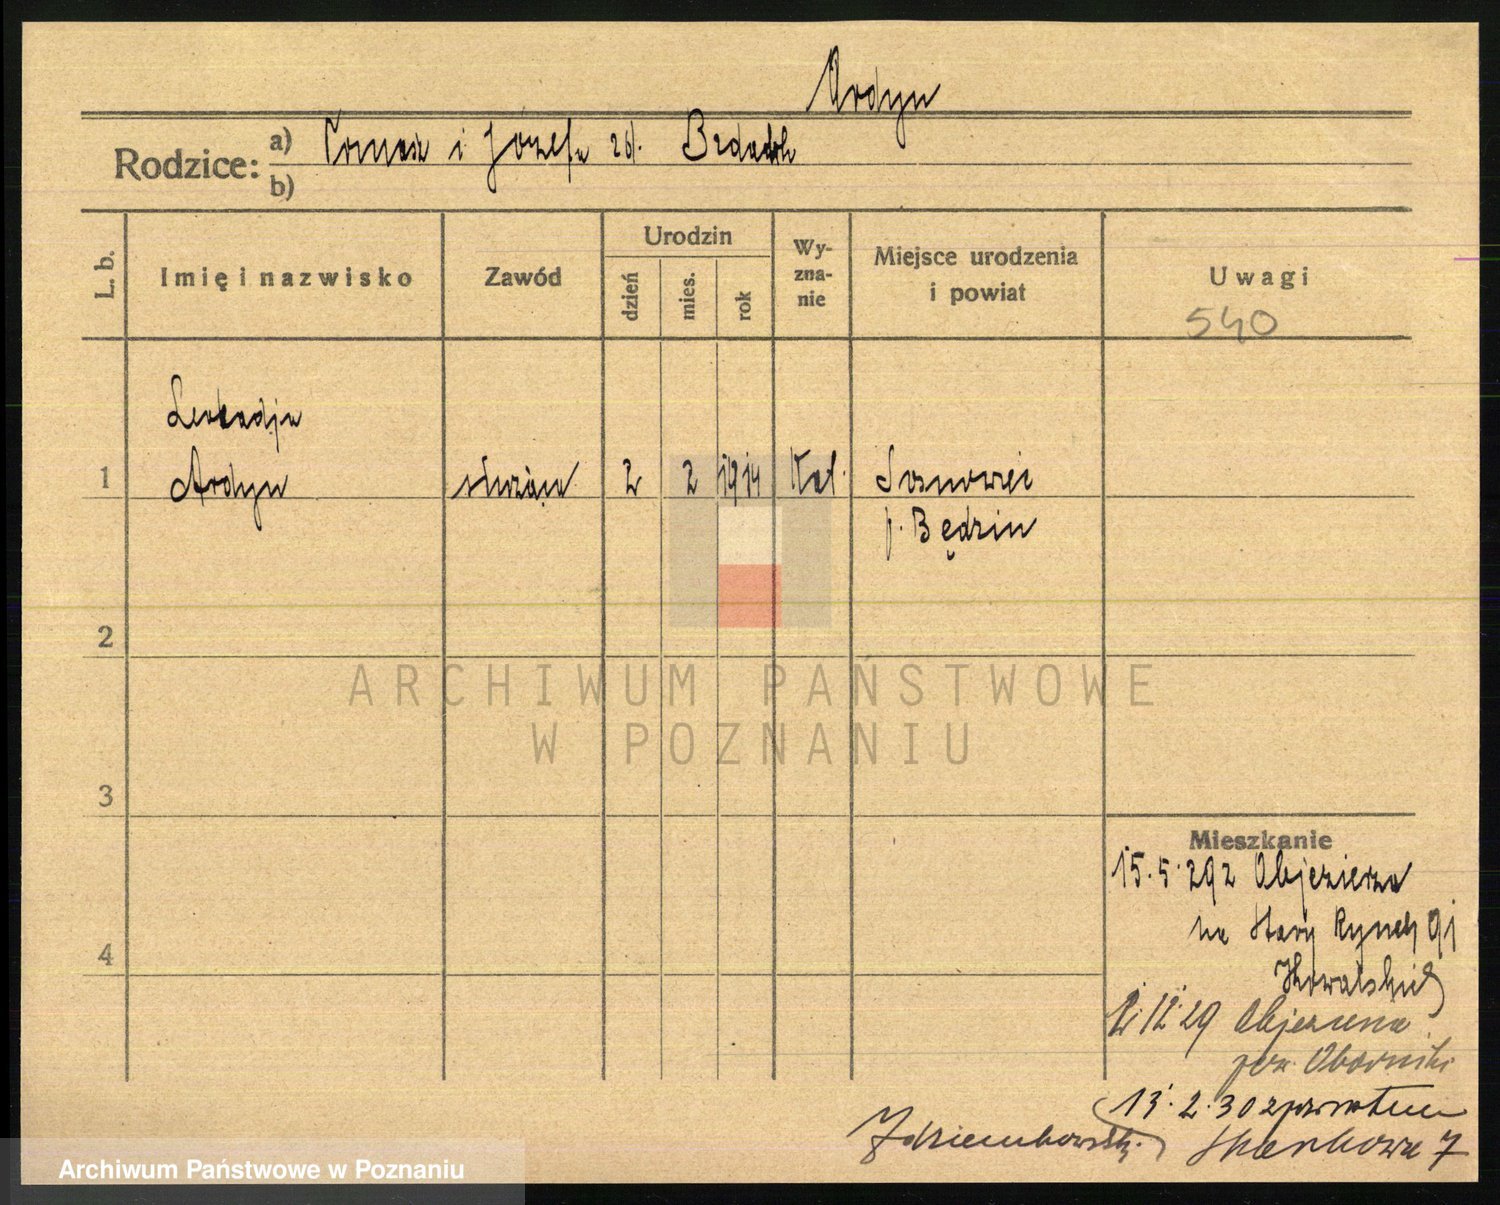 Ardyn
Rodzice: a) Tomasz i Józefa zd.
b)
L. b.
Imię i nazwisko
Zawód
Urodzin
dzień
mies.
rok
Wy-
zna-
nie
Miejsce urodzenia
i powiat
Uwagi
540
Leokadja
1 Ardyn służąca 2 2 1914 Kat. Sosnowiec
p. Będzin
2
ARCHIWUM PAŃSTWOWE
W POZNANIU
3
Mieszkanie
15.5.29 z Objezierza
na Stary Rynek 91
4
Kowalski
12.29 Objezierza
pow. Oborniki
13.2.30 z powrotem
Skarbowa 7
Archiwum Państwowe w Poznaniu